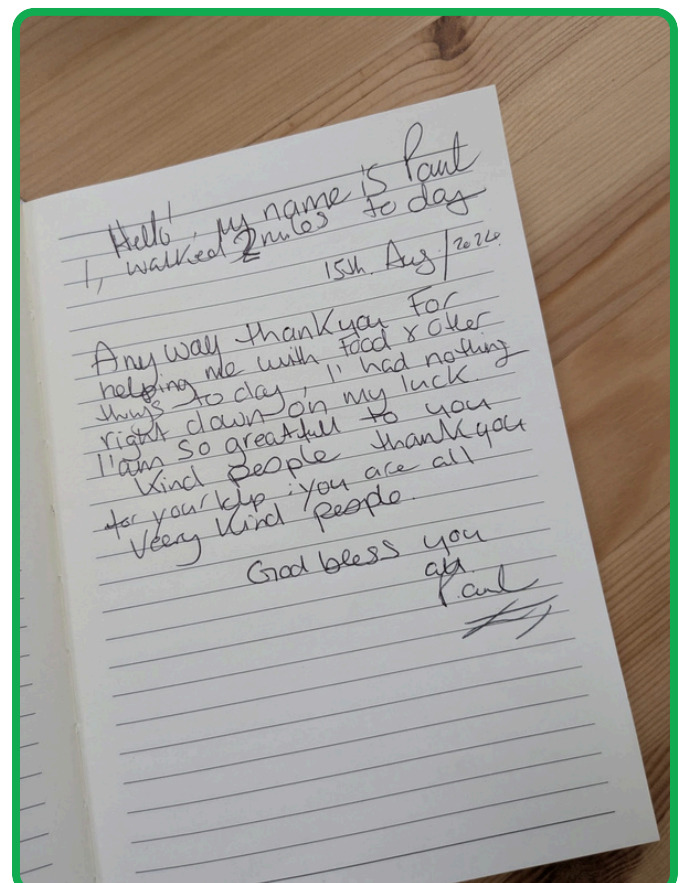 Hello! my name is Paul
I, walked 2 miles today
15th. Aug/2024.
Any way thankyou For
helping me with food & other
things to day, I' had nothing
right down on my luck.
I'am so greatfull to you
Kind people thankyou
for your help : you are all
Veery Kind people.
God bless you
all
Paul